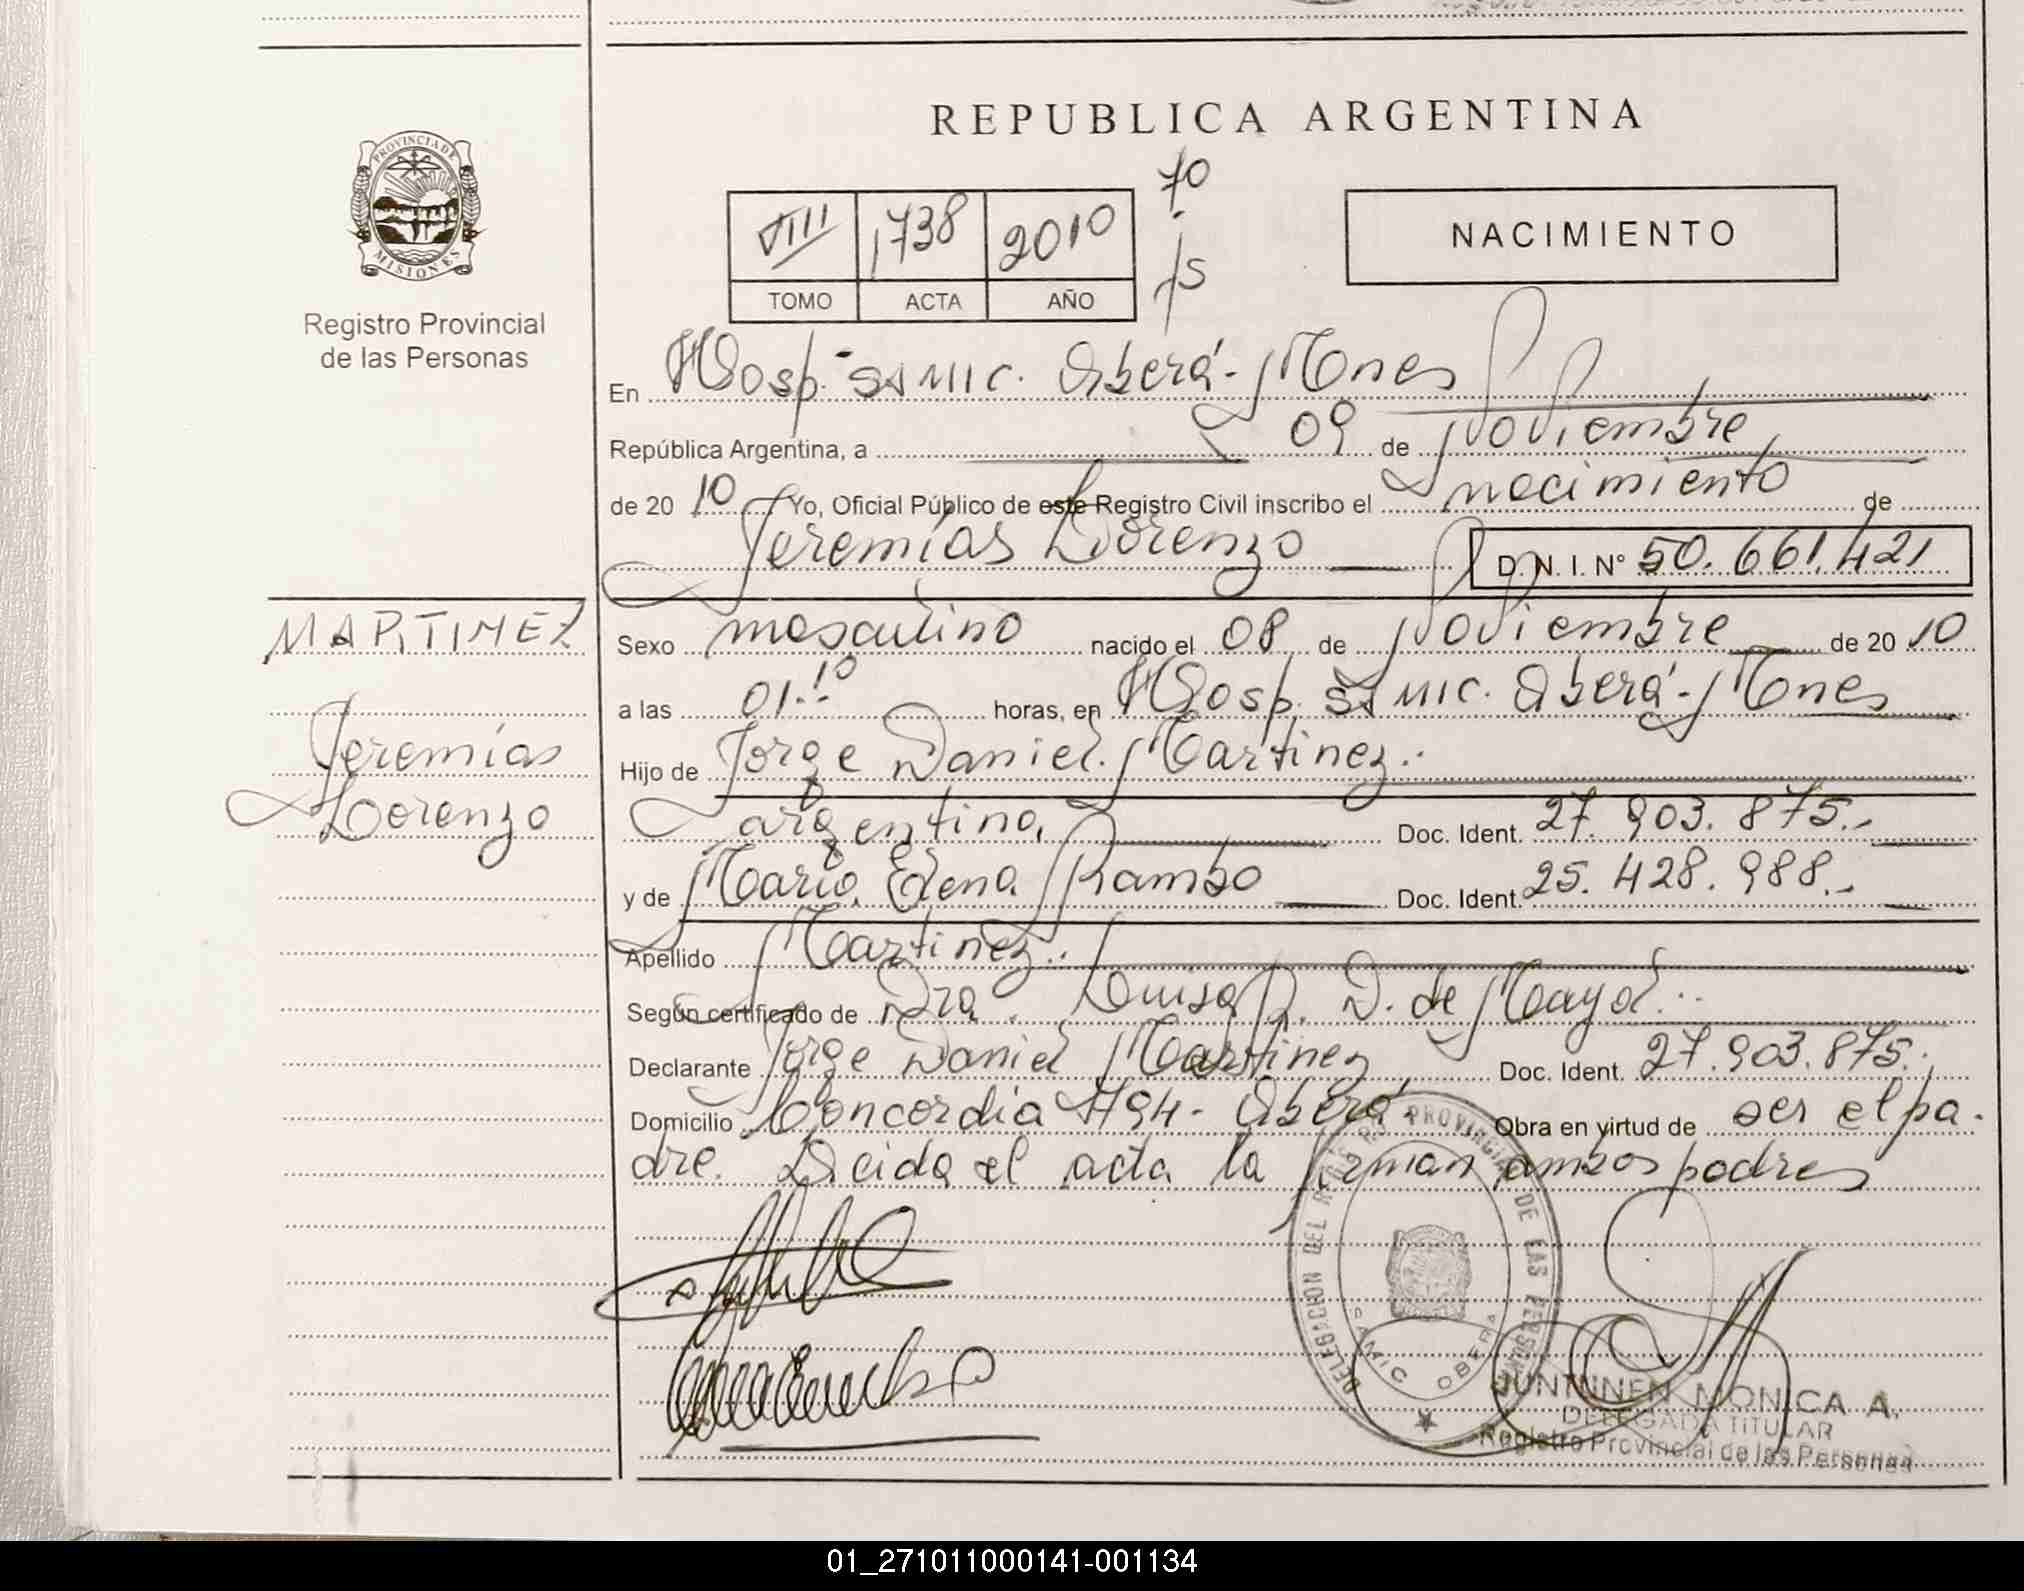 REPUBLICA ARGENTINA
PROVINCIA DE
MISIONES
Registro Provincial
de las Personas
VIII 1738 2010
TOMO ACTA AÑO
NACIMIENTO
En Hosp. SAMIC. Oberá - Mnes
República Argentina, a 09 de Noviembre
de 20 10 Yo, Oficial Público de este Registro Civil inscribo el nacimiento de
Jeremías Lorenzo D.N.I. Nº 50.661.421
MARTINEZ
Jeremías
Lorenzo
Sexo masculino nacido el 08 de Noviembre de 20 10
a las 01.10 horas, en Hosp. SAMIC. Oberá - Mnes
Hijo de Jorge Daniel Martinez.
argentino, Doc. Ident. 27.903.875.-
y de María Elena Rambo Doc. Ident. 25.428.988.-
Apellido Martinez.
Según certificado de Dra. Luisa D. de Mayol.
Declarante Jorge Daniel Martinez Doc. Ident. 27.903.875.
Domicilio Concordia 794 - Oberá Obra en virtud de ser el pa-
dre. Leída el acta la firman ambos padres
DELEGACION DEL REG. PROVINCIAL DE LAS PERSONAS
SAMIC OBERA
JUNTUNEN MONICA A.
DELEGADA TITULAR
Registro Provincial de las Personas
01_271011000141-001134